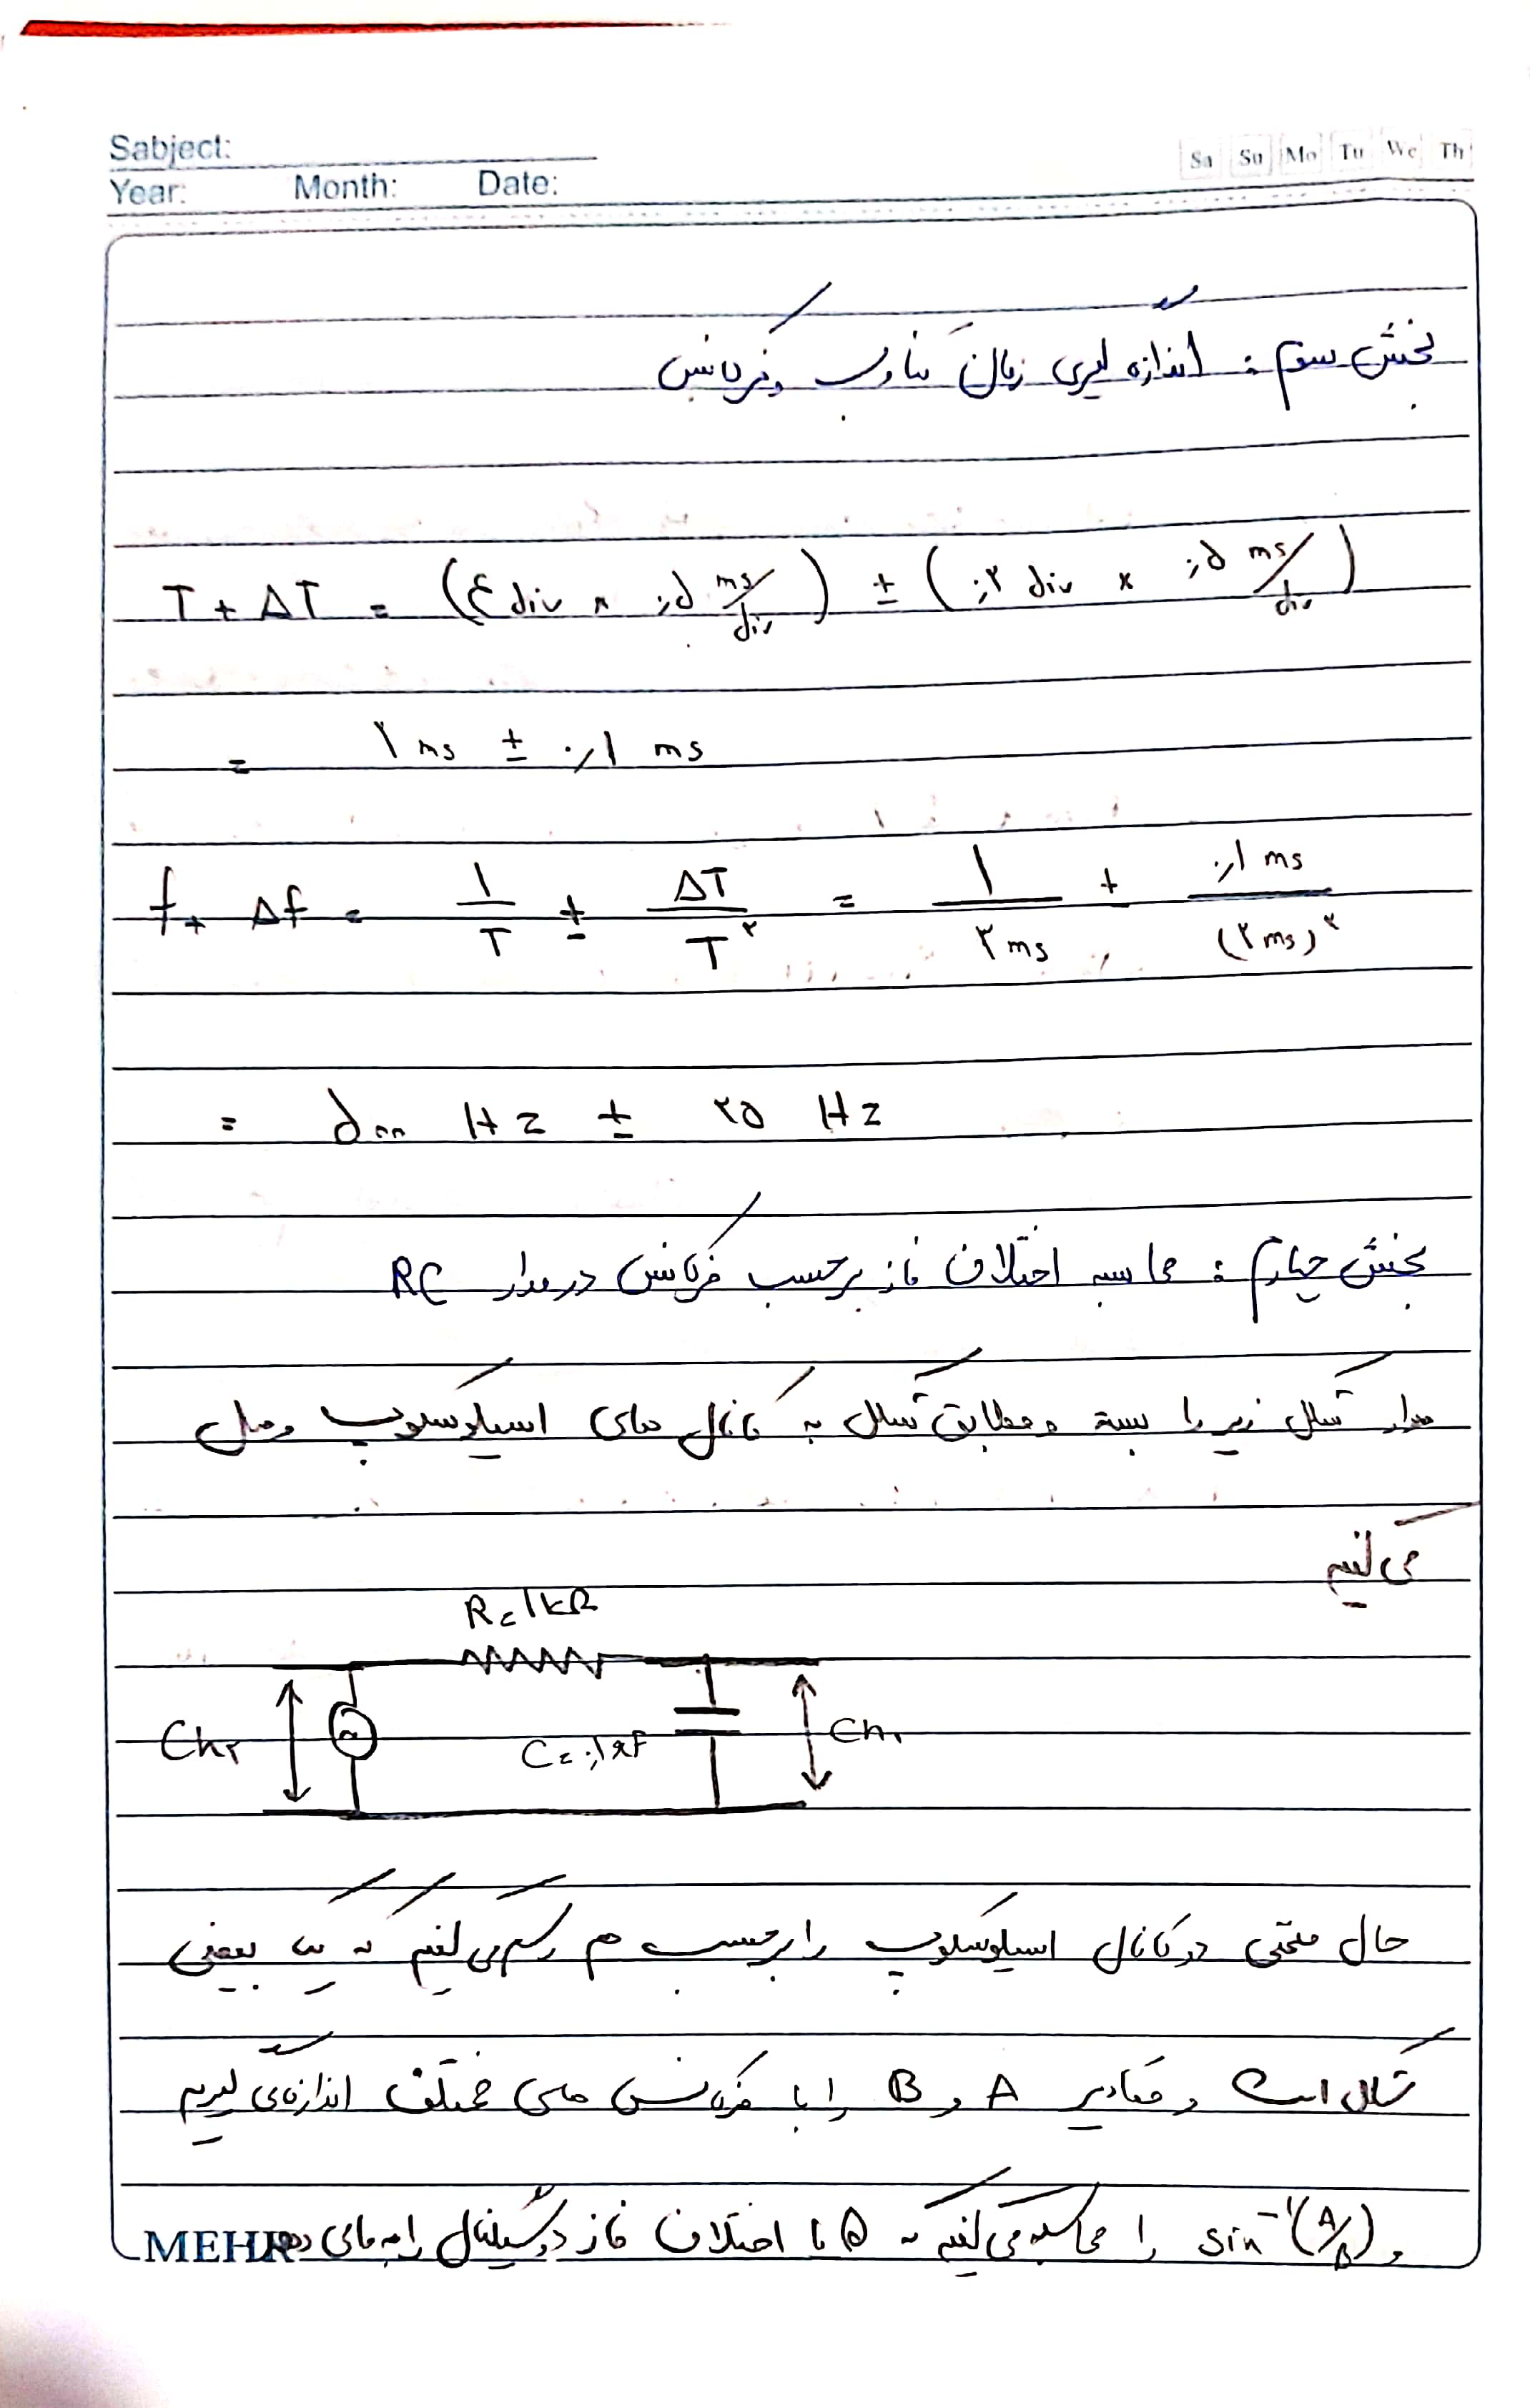 Sabject:
Year: Month: Date:
Sa Su Mo Tu We Th
بخش سوم : اندازه گیری زمان تناوب و فرکانس
T + ΔT = (٤ div × ۰٫۵ ms/div) ± (۰٫۲ div × ۰٫۵ ms/div)
= ۲ ms ± ۰٫۱ ms
f + Δf = ۱/T ± ΔT/T^۲ = ۱/۲ ms ± ۰٫۱ ms/(۲ ms)^۲
= ۵۰۰ Hz ± ۲۵ Hz
بخش چهارم : محاسبه اختلاف فاز برحسب فرکانس در مدار RC
مدار شکل زیر را بسته و مطابق شکل به کانال های اسیلوسکوپ وصل
می کنیم
R = ۱ kΩ
Ch۲ C = ۰٫۱ µF Ch۱
حال منحنی دو کانال اسیلوسکوپ را برحسب هم رسم می کنیم که یک بیضی
شکل است و مقادیر A و B را با فرکانس های مختلف اندازه می گیریم
و sin^-۱(A/B) را محاسبه می کنیم که θ یا اختلاف فاز دو سیگنال را به جای دهد
MEHR